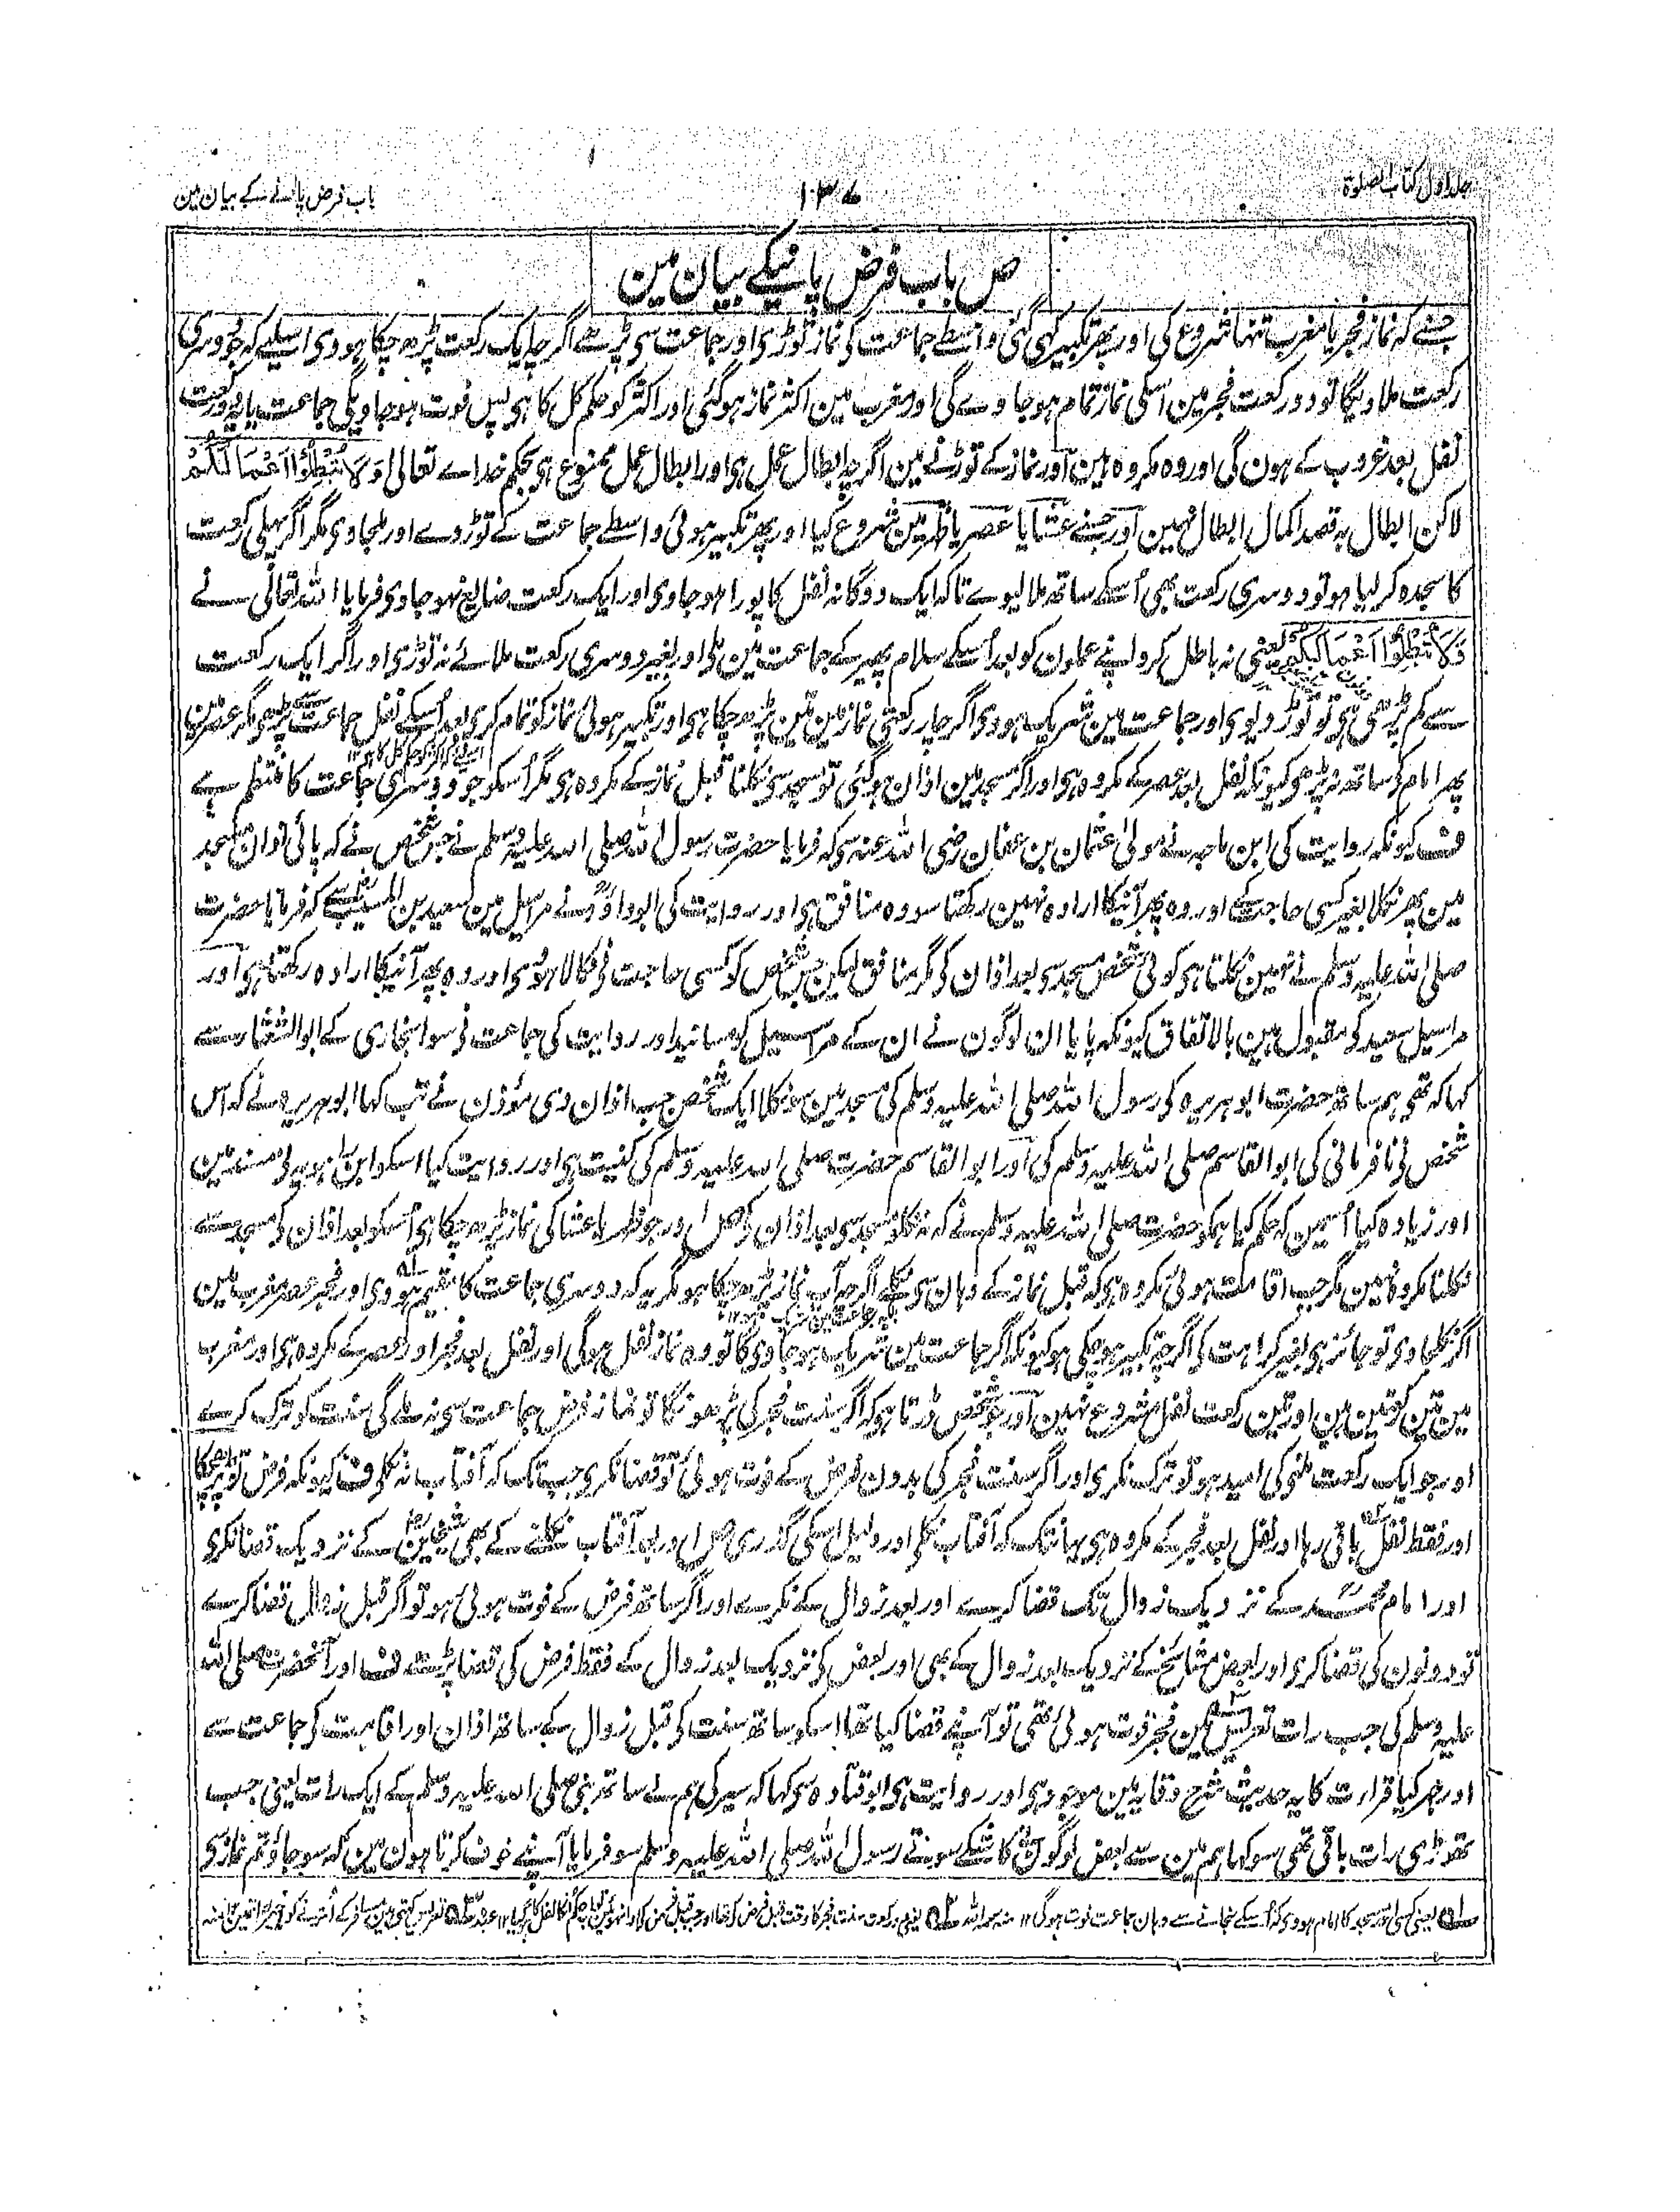 جلد اول کتاب الصلوٰۃ
۱۳۷
باب فرض پانے کے بیان مین
ص باب فرض پانیکے بیان مین
جسنے کہ نماز فجر یا مغرب تنہا شروع کی اور پھر تکبیر کہی گئی واسطے جماعت کی نماز توڑی اور جماعت سی پڑھے اگرچہ ایک رکعت پڑھ چکا ہووی اسلیے کہ جو دوسری
رکعت ملاویگا تو دو رکعت فجر مین اسکی نماز تمام ہو جاوے گی اور مغرب مین اکثر نماز ہوگئی اور اکثر کو حکم کل کا ہی پس فوت ہو جاویگی جماعت یا یہ رکعت
نفل بعد غروب کے ہون گی اور وہ مکروہ ہین اور نماز کے توڑنے مین اگرچہ ابطال عمل ہی اور ابطال عمل ممنوع ہی بحکم خداے تعالی وَلَا تُبْطِلُوْٓا اَعْمَالَكُمْ
لاکن ابطال بہ قصد اکمال ابطال نہین اور جسنے عشا یا عصر یا ظہر مین شروع کیا اور پھر تکبیر ہوئی واسطے جماعت کے توڑ دے اور ملجاوی مگر اگر پہلی رکعت
کا سجدہ کر لیا ہو تو دوسری رکعت بھی اُسکے ساتھ ملا لیوے تاکہ ایک دوگانہ نفل کا پورا ہو جاوی اور ایک رکعت ضایع نہو جاوی فرمایا اللہ تعالی نے
وَلَا تُبْطِلُوْٓا اَعْمَالَكُمْ یعنی نہ باطل کرو اپنے عملون کو بعد اُسکے سلام پھیر کے جماعت مین ملی اور بغیر دوسری رکعت ملائے نہ توڑی اور اگر ایک رکعت
سے کم پڑھی ہی تو توڑ دیوی اور جماعت مین شریک ہووی اگر چار رکعتی نماز مین تین پڑھ چکا ہی اور تکبیر ہوئی نماز کو تمام کری بعد اُسکے نفل جماعت سے پڑھی مگر عصر مین
پھر امام کو ساتھ نہ پڑھو کیونکہ نفل بعد عصر کے مکروہ ہی اور اگر مسجد مین اذان ہوگئی تو مسجد سی نکلنا قبل نماز کے مکروہ ہی مگر اُسکو جو دوسری جماعت کا منتظم ہے
ف کیونکہ روایت کی ابن ماجہ نے مولیٰ عثمان بن عفان رضی اللہ عنہ سی کہ فرمایا حضرت رسول اللہ صلی اللہ علیہ وسلم نے جس شخص نے کہ پائی اذان مسجد
مین پھر نکلا بغیر کسی حاجت کے اور وہ پھر آنیکا ارادہ نہین رکھتا سو وہ منافق ہی اور روایت کی ابوداؤد نے مراسیل مین سعید بن المسیب سے کہ فرمایا حضرت
صلی اللہ علیہ وسلم نے نہین نکلتا ہی کوئی شخص مسجد سی بعد اذان کی مگر منافق لیکن جس شخص کو کسی حاجت نی نکالا ہو وی اور وہ پھر آنیکا ارادہ رکھتا ہی اور
مراسیل سعید کو مقبول ہین بالاتفاق کیونکہ پایا ان لوگون نے ان کے مراسیل کو مسانید اور روایت کی جماعت نی سوا بخاری کے ابو الشعثا سے
کہا کہ تھی ہم ساتھ حضرت ابو ہریرہ کی رسول اللہ صلی اللہ علیہ وسلم کی مسجد مین سو نکلا ایک شخص جب اذان دی مؤذن نے تب کہا ابو ہریرہ نے کہ اس
شخص نی نافرمانی کی ابو القاسم صلی اللہ علیہ وسلم کی اور ابو القاسم حضرت صلی اللہ علیہ وسلم کی کنیت ہی اور روایت کیا اسکو ابن راہویہ نی مسند مین
اور زیادہ کیا اُسمین کہ حکم کیا ہمکو حضرت صلی اللہ علیہ وسلم نے کہ نہ نکلو مسجد سی بعد اذان کو ص اور جو ظہر یا عشا کی نماز پڑھ چکا ہی اُسکو بعد اذان کو مسجد سے
نکلنا مکروہ نہین مگر جب اقامت ہوئی مکروہ ہی کہ قبل نماز کے وہان سی نکلے اگرچہ آپ نماز پڑھ چکا ہو مگر یہ کہ دوسری جماعت کا مقیم ہووی اور فجر عصر مغرب مین
اگر نکلجاوی تو جائز ہی بغیر کراہت کی اگرچہ تکبیر ہو چکی ہو کیونکہ اگر جماعت مین شریک ہو جاوی گا تو وہ نماز نفل ہوگی اور نفل بعد فجر اور عصر کے مکروہ ہی اور مغرب
مین تین رکعتین ہین اور تین رکعت نفل مشروع نہین اور جو شخص ڈرتا ہو کہ اگر سنت فجر کی پڑھونگا تو نماز فرض جماعت سی نہ ملے گی سنت کو ترک کرے
اور جو ایک رکعت ملنی کی امید ہو تو ترک نکری اور اگر سنت فجر کی بدون فرض کے فوت ہوئی تو قضا نکری جب تک کہ آفتاب نہ نکلی ف کیونکہ فرض تو پڑھ چکا
اور فقط نفل باقی رہا اور نفل بعد فجر کے مکروہ ہی یہانتک کہ آفتاب نکلی اور دلیل اسکی گذری ص اور بعد آفتاب نکلنے کے بھی شیخین کے نزدیک قضا نکری
اور امام محمد کے نزدیک زوال تک قضا کرے اور بعد زوال کے نکرے اور اگر ساتھ فرض کے فوت ہوئی ہو تو اگر قبل زوال قضا کرے
تو دونون کی قضا کری اور بعض مشایخ کے نزدیک بعد زوال کے بھی اور بعض کی نزدیک بعد زوال کے فقط فرض کی قضا پڑھے ف اور آنحضرت صلی اللہ
علیہ وسلم کی جب رات تعریس مین فجر فوت ہوئی تھی تو آپنے قضا کیا تھا اسکو ساتھ سنت کی قبل زوال کے ساتھ اذان اور اقامت کی جماعت سے
اور جہر کیا قراءت کا یہ حدیث شرح وقایہ مین موجود ہی اور روایت ہی ابو قتادہ سی کہا کہ سیر کی ہم نے ساتھ نبی صلی اللہ علیہ وسلم کے ایک رات یعنی جب
تھوڑی رات باقی تھی سو کہا ہم مین سے بعض لوگون نے کاشکے سوتے رسول اللہ صلی اللہ علیہ وسلم سو فرمایا آپنے خوف کرتا ہون مین کہ سو جاؤ تم نماز سی
یعنی کسی اور مسجد کا امام ہووی کہ اُسکے نجانے سے وہان جماعت فوت ہوگی ۱۲ منہ رحمہ اللہ